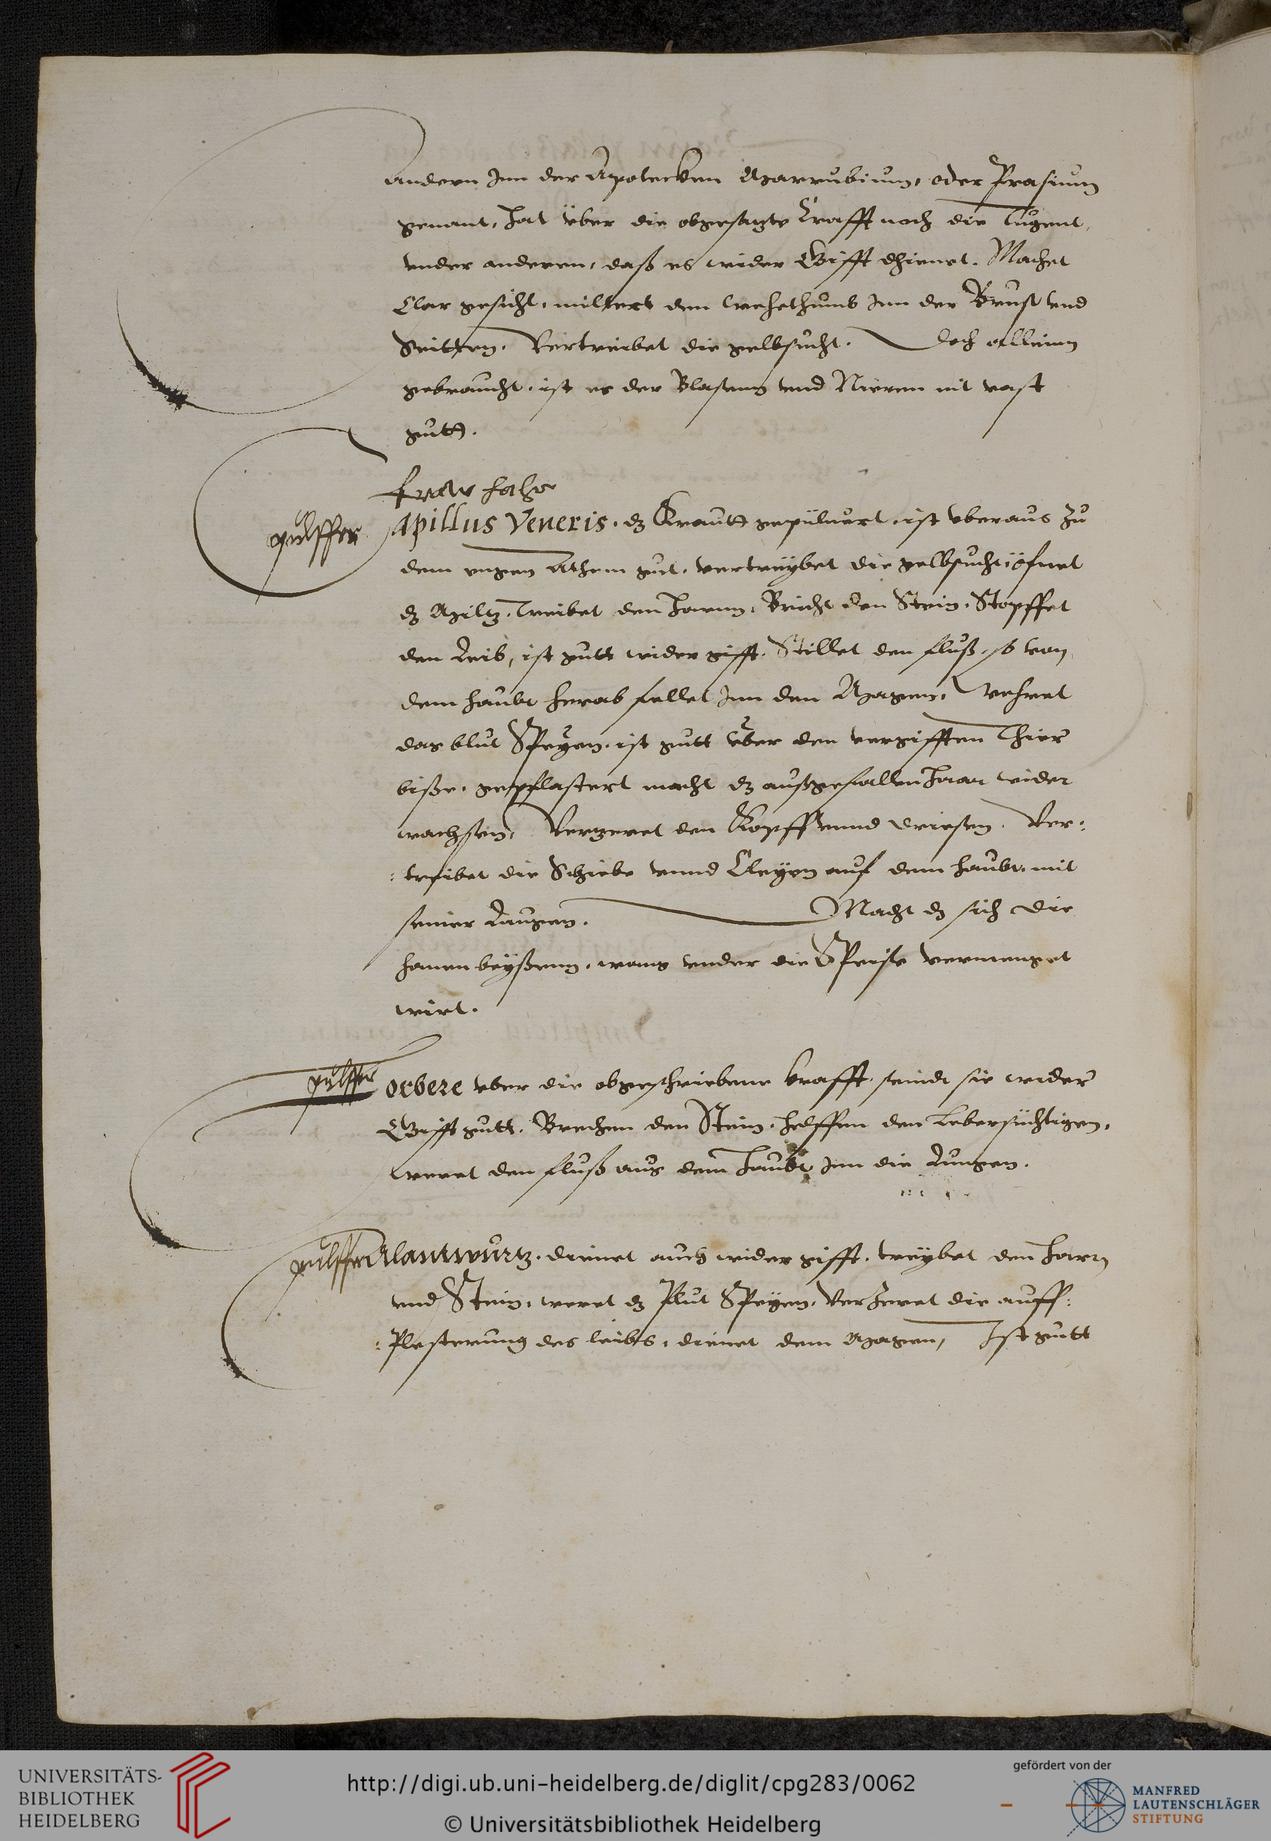 andern Inn der Apotecken Marrubium, oder Prasium
genant, hat vber die obgesagte Krafft noch die Tugent,
vnder anderen, daß es wider Gifft dhienet. Machet
Clar gesicht, miltert den wehethumb Inn der Brust vnd
Seitten. Vertreibet die gelbsucht. Doch allein
gebraucht, ist es der Blasenn vnd Nieren nit vast
gutt.
fraw hahr
pulffer
Capillus Veneris. dz Krautt gepuluert, ist vberaus zu
dem engen Athem gut, vertreybet die gelbsucht, öfnet
dz Miltz, Treibet den Harnn, Bricht den Stein, Stopffet
den Leib, ist gutt wider gifft. Stillet den fluß, so von
dem haubt herab fellet Inn den Magen. Wehret
das blut Speyen, ist gutt vber den vergifften Thier
biße, gepflastert macht dz außgefallen Haar wider
wachsen, Verzeret den Kropff vnnd driesen. Ver-
treibet die Schiebe vnnd Cleyen auf dem haubt, mit
seiner Laugen. Macht dz sich die
hanen beyßenn, wans vnder die Speise vermenget
wirt.
pulffer
Lorbere vber die obgeschriebene krafft, seindt sie wider
Gifft gutt. Brechen den Stein, helffen den Lebersüchtigen,
weret den fluß aus dem Haubt Inn die Lungen.
pulffer
Alantwurtz. dienet auch wider gifft, treybet den Harn
vnd Stein, weret dz Plut Speyen, Verzeret die auff-
Plesterung des leibs, dienet dem Magen, Ist gutt
UNIVERSITÄTS-
BIBLIOTHEK
HEIDELBERG
http://digi.ub.uni-heidelberg.de/diglit/cpg283/0062
© Universitätsbibliothek Heidelberg
gefördert von der
MANFRED
LAUTENSCHLÄGER
STIFTUNG